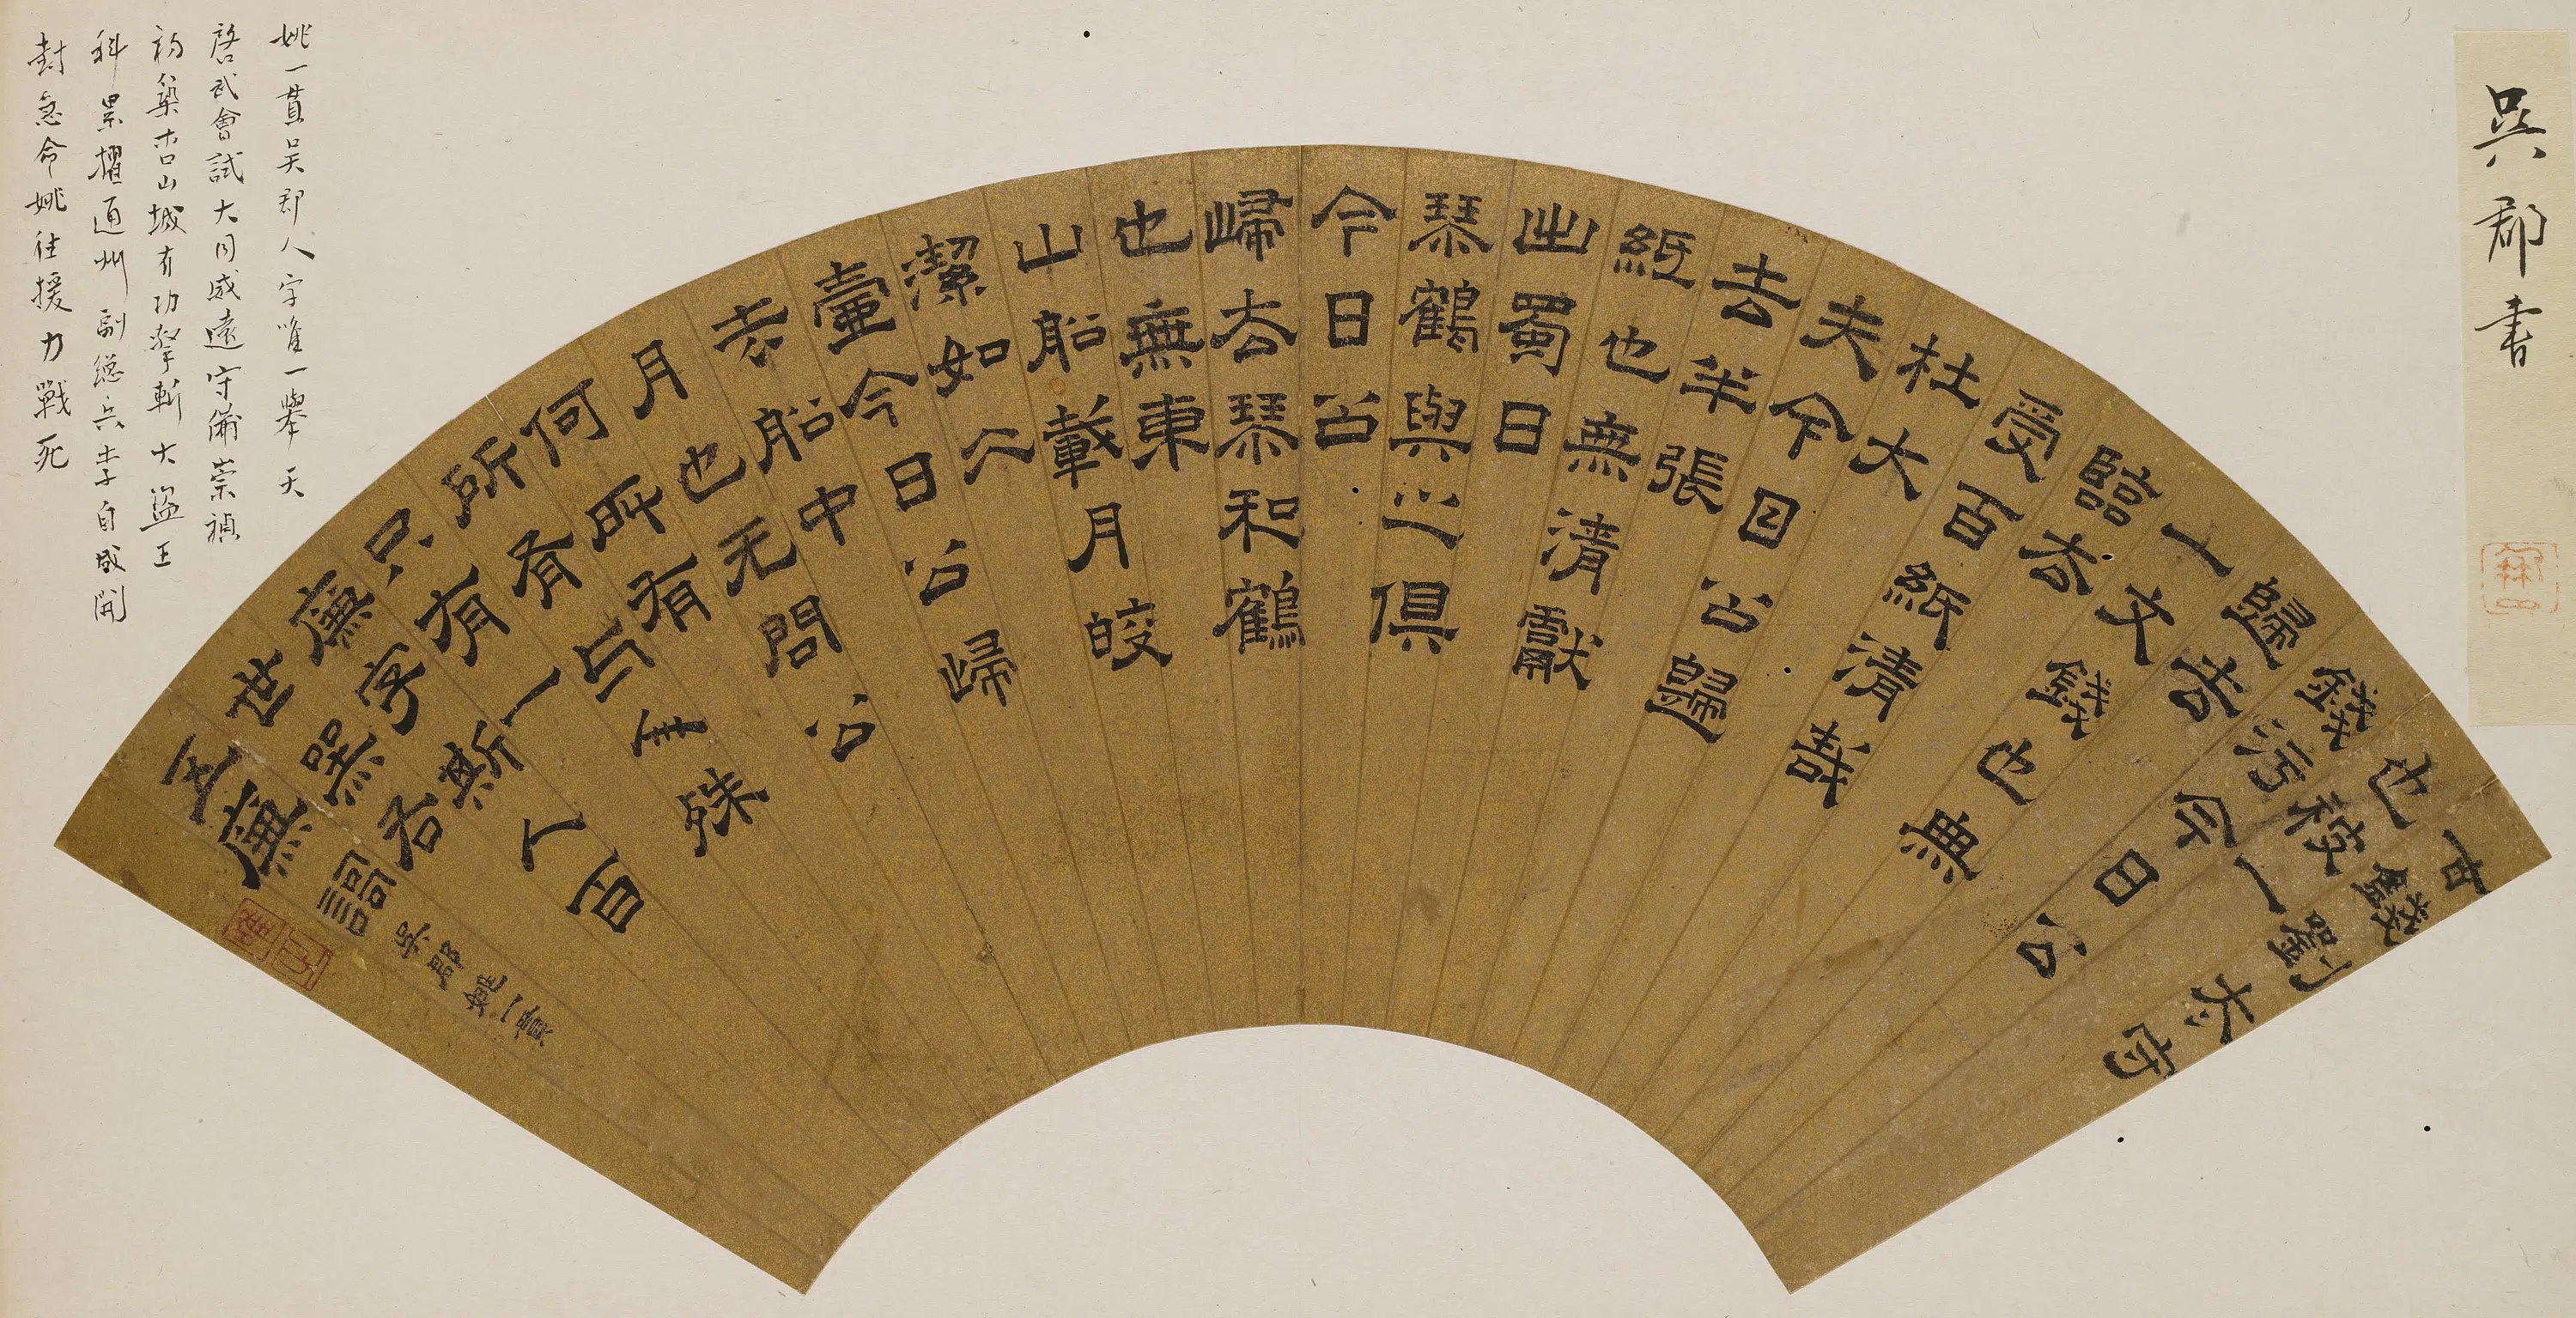 吳郡書
古錢劉太守
也被一
錢污今日公
歸去
一文錢也無
臨去
受百紙清哉
杜大
夫今日公歸
去半張
紙也無清獻
出蜀日
琴鶴與之俱
今日公
歸去琴和鶴
也無東
山船載月皎
潔如公
壺今日公歸
去船中
月也无問公
何所有
所有与年殊
只有一
廉字斯人百
世黑君
王廉詞
吳郡姚一貫
姚一貫吳郡人字唯一舉天
啓武會試大同威遠守備崇禎
初築杏山城有功擊斬大盜王
科累擢通州副總兵李自成開
封急命姚往援力戰死